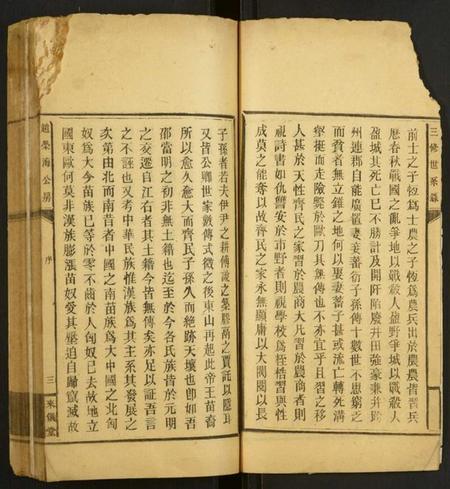 三修世系錄
前士之子恆爲士農之子恆爲農兵出於農農皆習兵
歷春秋戰國之亂爭地以戰殺人雄野爭城以戰殺人
盈城其死亡已不勝計及開阡陌廢井田強豪兼并跨
州連郡自能廣置妻妾蕃衍子孫傳十數世不思窮乏
而貧者無立錐之地何以妻蓄子甚或流亡轉死溝
壑挺而走險斃於歐刀其無傳也不亦宜乎且習之移
人甚於天性齊民之家習於農商大凡習於農商者則
視詩書如仇讎安於市野者則視學校爲桎梏習與性
成莫之能奪以故齊民之家永無顯庸以大閥閱以長
子孫者若夫伊尹之耕傅說之築膠鬲之賈託以隱耳
又皆公卿世家數傳式微之後東山再起此帝王苗裔
所以愈久愈大而齊民子孫久而絕跡天壤也卽如吾
邵當明之初非無土籍也迄至於今各民族皆於元明
之交遷自江右者其土籍今皆無傳矣亦足以証吾言
之不誣也又考中華民族惟漢族爲其主系其發展之
次第由北而南昔者中國之南苗族爲大中國之北匈
奴爲大今苗族已等於零不齒於人匈奴已去故地立
國東歐何莫非漢族膨漲苗奴受其壓迫自歸竄滅故
趙榮海公房 序 三 來儀堂